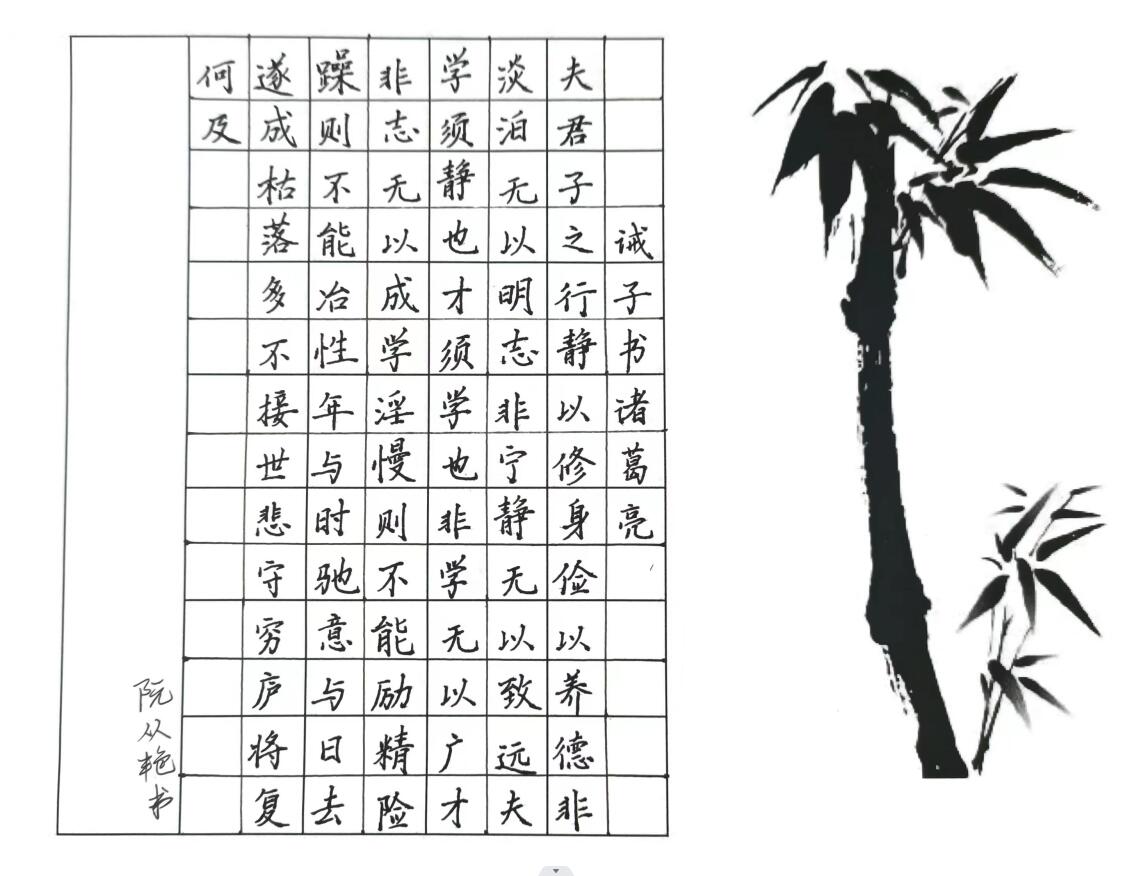 诫子书诸葛亮
夫君子之行静以修身俭以养德非
淡泊无以明志非宁静无以致远夫
学须静也才须学也非学无以广才
非志无以成学淫慢则不能励精险
躁则不能冶性年与时驰意与日去
遂成枯落多不接世悲守穷庐将复
何及
阮从艳书